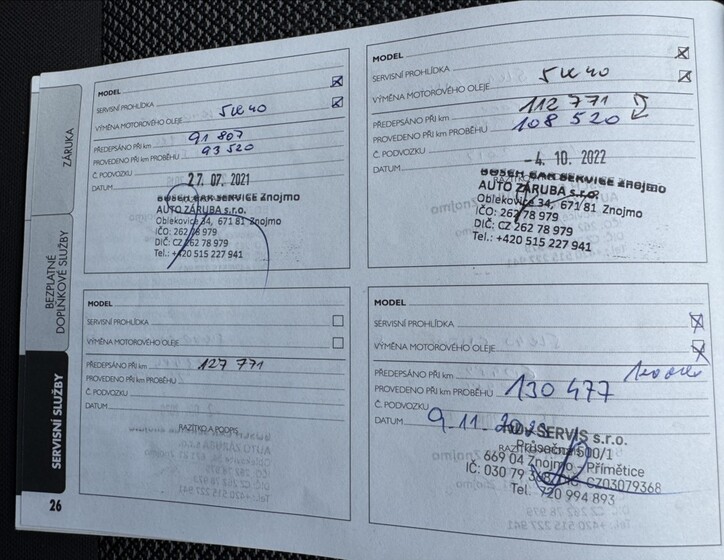 ZÁRUKA
BEZPLATNÉ
DOPLŇKOVÉ SLUŽBY
SERVISNÍ SLUŽBY
26
MODEL
SERVISNÍ PROHLÍDKA
VÝMĚNA MOTOROVÉHO OLEJE 5W40
PŘEDEPSÁNO PŘI km 91 807
PROVEDENO PŘI km PROBĚHU 93 520
Č. PODVOZKU
DATUM 27. 07. 2021
BOSCH CAR SERVICE Znojmo
AUTO ZÁRUBA s.r.o.
Oblekovice 34, 671 81 Znojmo
IČO: 262 78 979
DIČ: CZ 262 78 979
Tel.: +420 515 227 941
MODEL
SERVISNÍ PROHLÍDKA
VÝMĚNA MOTOROVÉHO OLEJE 5W40
PŘEDEPSÁNO PŘI km 112 771
PROVEDENO PŘI km PROBĚHU 108 520
Č. PODVOZKU
DATUM -4. 10. 2022
BOSCH CAR SERVICE Znojmo
AUTO ZÁRUBA s.r.o.
Oblekovice 34, 671 81 Znojmo
IČO: 262 78 979
DIČ: CZ 262 78 979
Tel.: +420 515 227 941
MODEL
SERVISNÍ PROHLÍDKA
VÝMĚNA MOTOROVÉHO OLEJE
PŘEDEPSÁNO PŘI km 127 771
PROVEDENO PŘI km PROBĚHU
Č. PODVOZKU
DATUM
RAZÍTKO A PODPIS
MODEL
SERVISNÍ PROHLÍDKA
VÝMĚNA MOTOROVÉHO OLEJE
PŘEDEPSÁNO PŘI km
PROVEDENO PŘI km PROBĚHU 130 477
Č. PODVOZKU
DATUM 9.11.
SERVIS s.r.o.
500/1
669 04 Znojmo - Přímětice
CZ03079368
Tel. 720 994 893